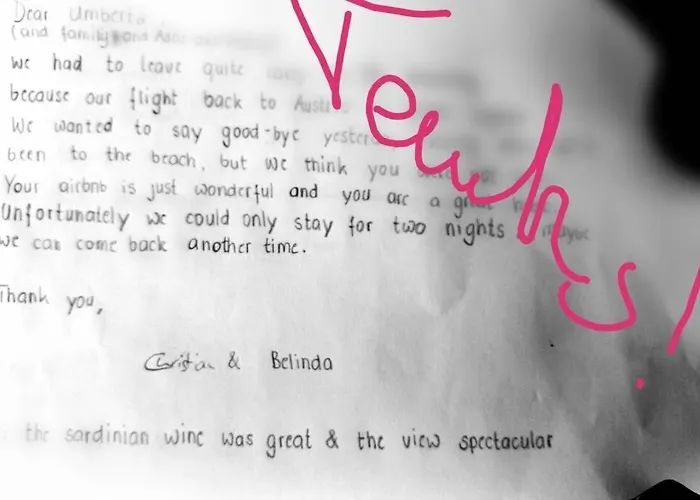 Dear Umberto
(and family and
we had to leave quite
because our flight back to
We wanted to say good-bye
been to the beach, but we think you
Your airbnb is just wonderful and you are a
Unfortunately we could only stay for two nights maybe
we can come back another time.
Thank you,
Christian & Belinda
the sardinian wine was great & the view spectacular